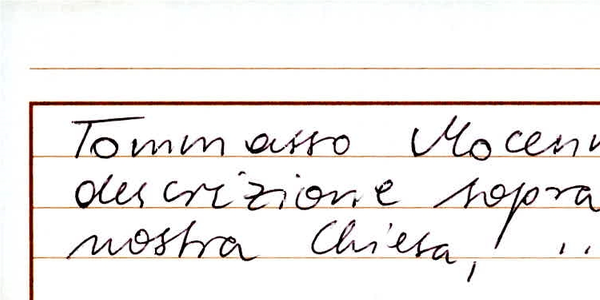 Tommasso Mocenn
descrizione sopra
nostra Chiesa, ..